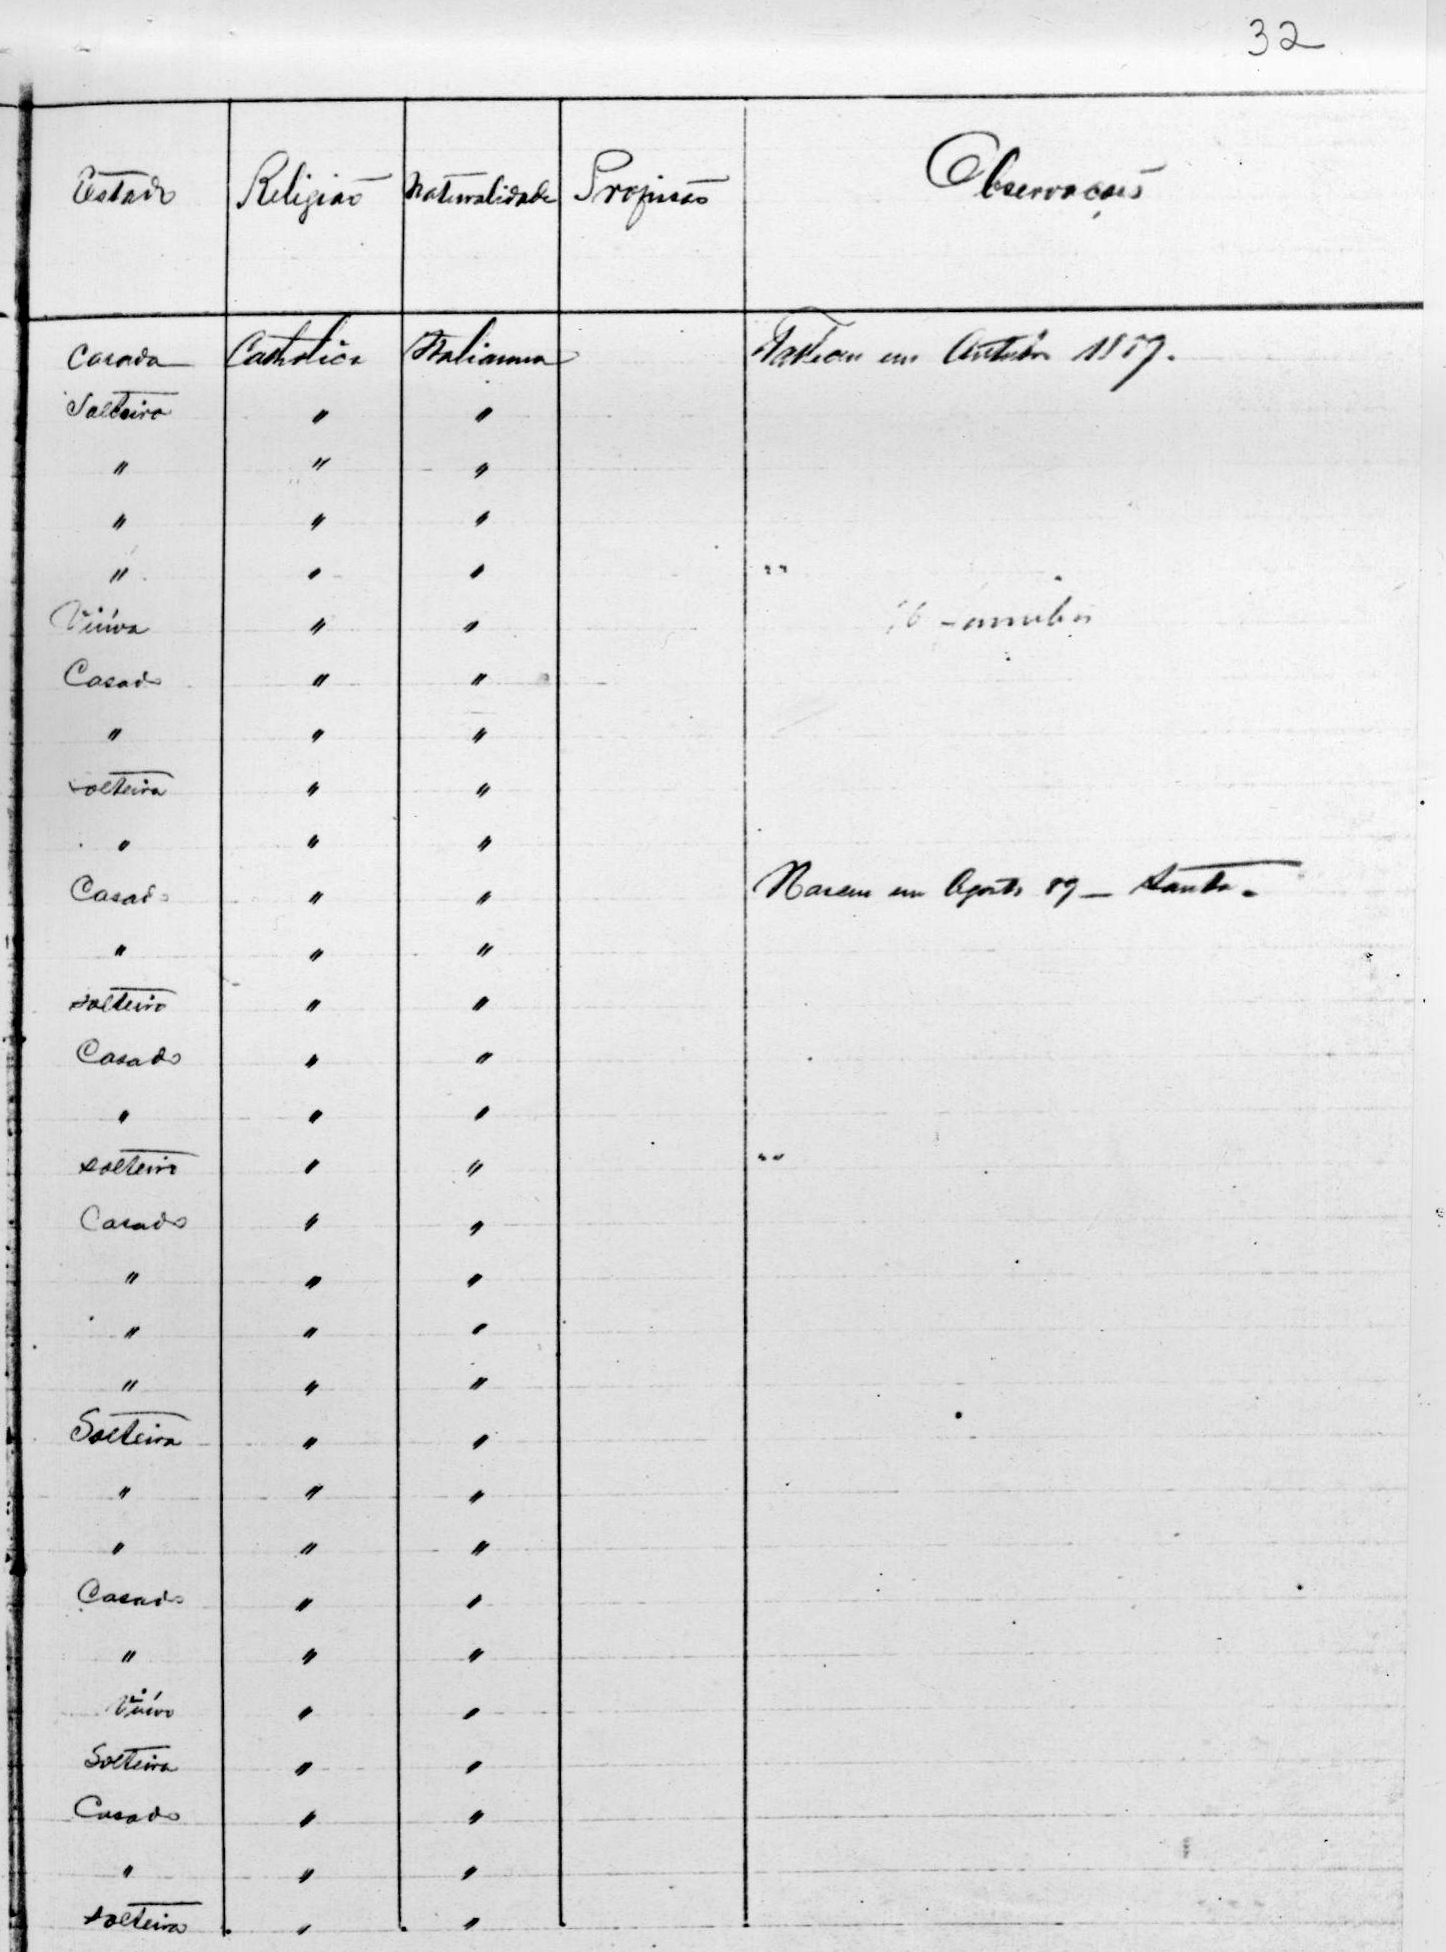 32
Estado Religião Naturalidade Profissão Observações
Casada Catholica Italianna em Outubro 1889.
Solteiro " "
" " "
" " "
" " " "
Viúva " "
Casado " "
" " "
Solteira " "
" " "
Casado " " Nasceu em Agosto 89 —
" " "
Solteiro " "
Casado " "
" " "
Solteiro " " "
Casado " "
" " "
" " "
" " "
Solteira " "
" " "
" " "
Casado " "
" " "
Viúvo " "
Solteira " "
Casado " "
" " "
Solteira " "